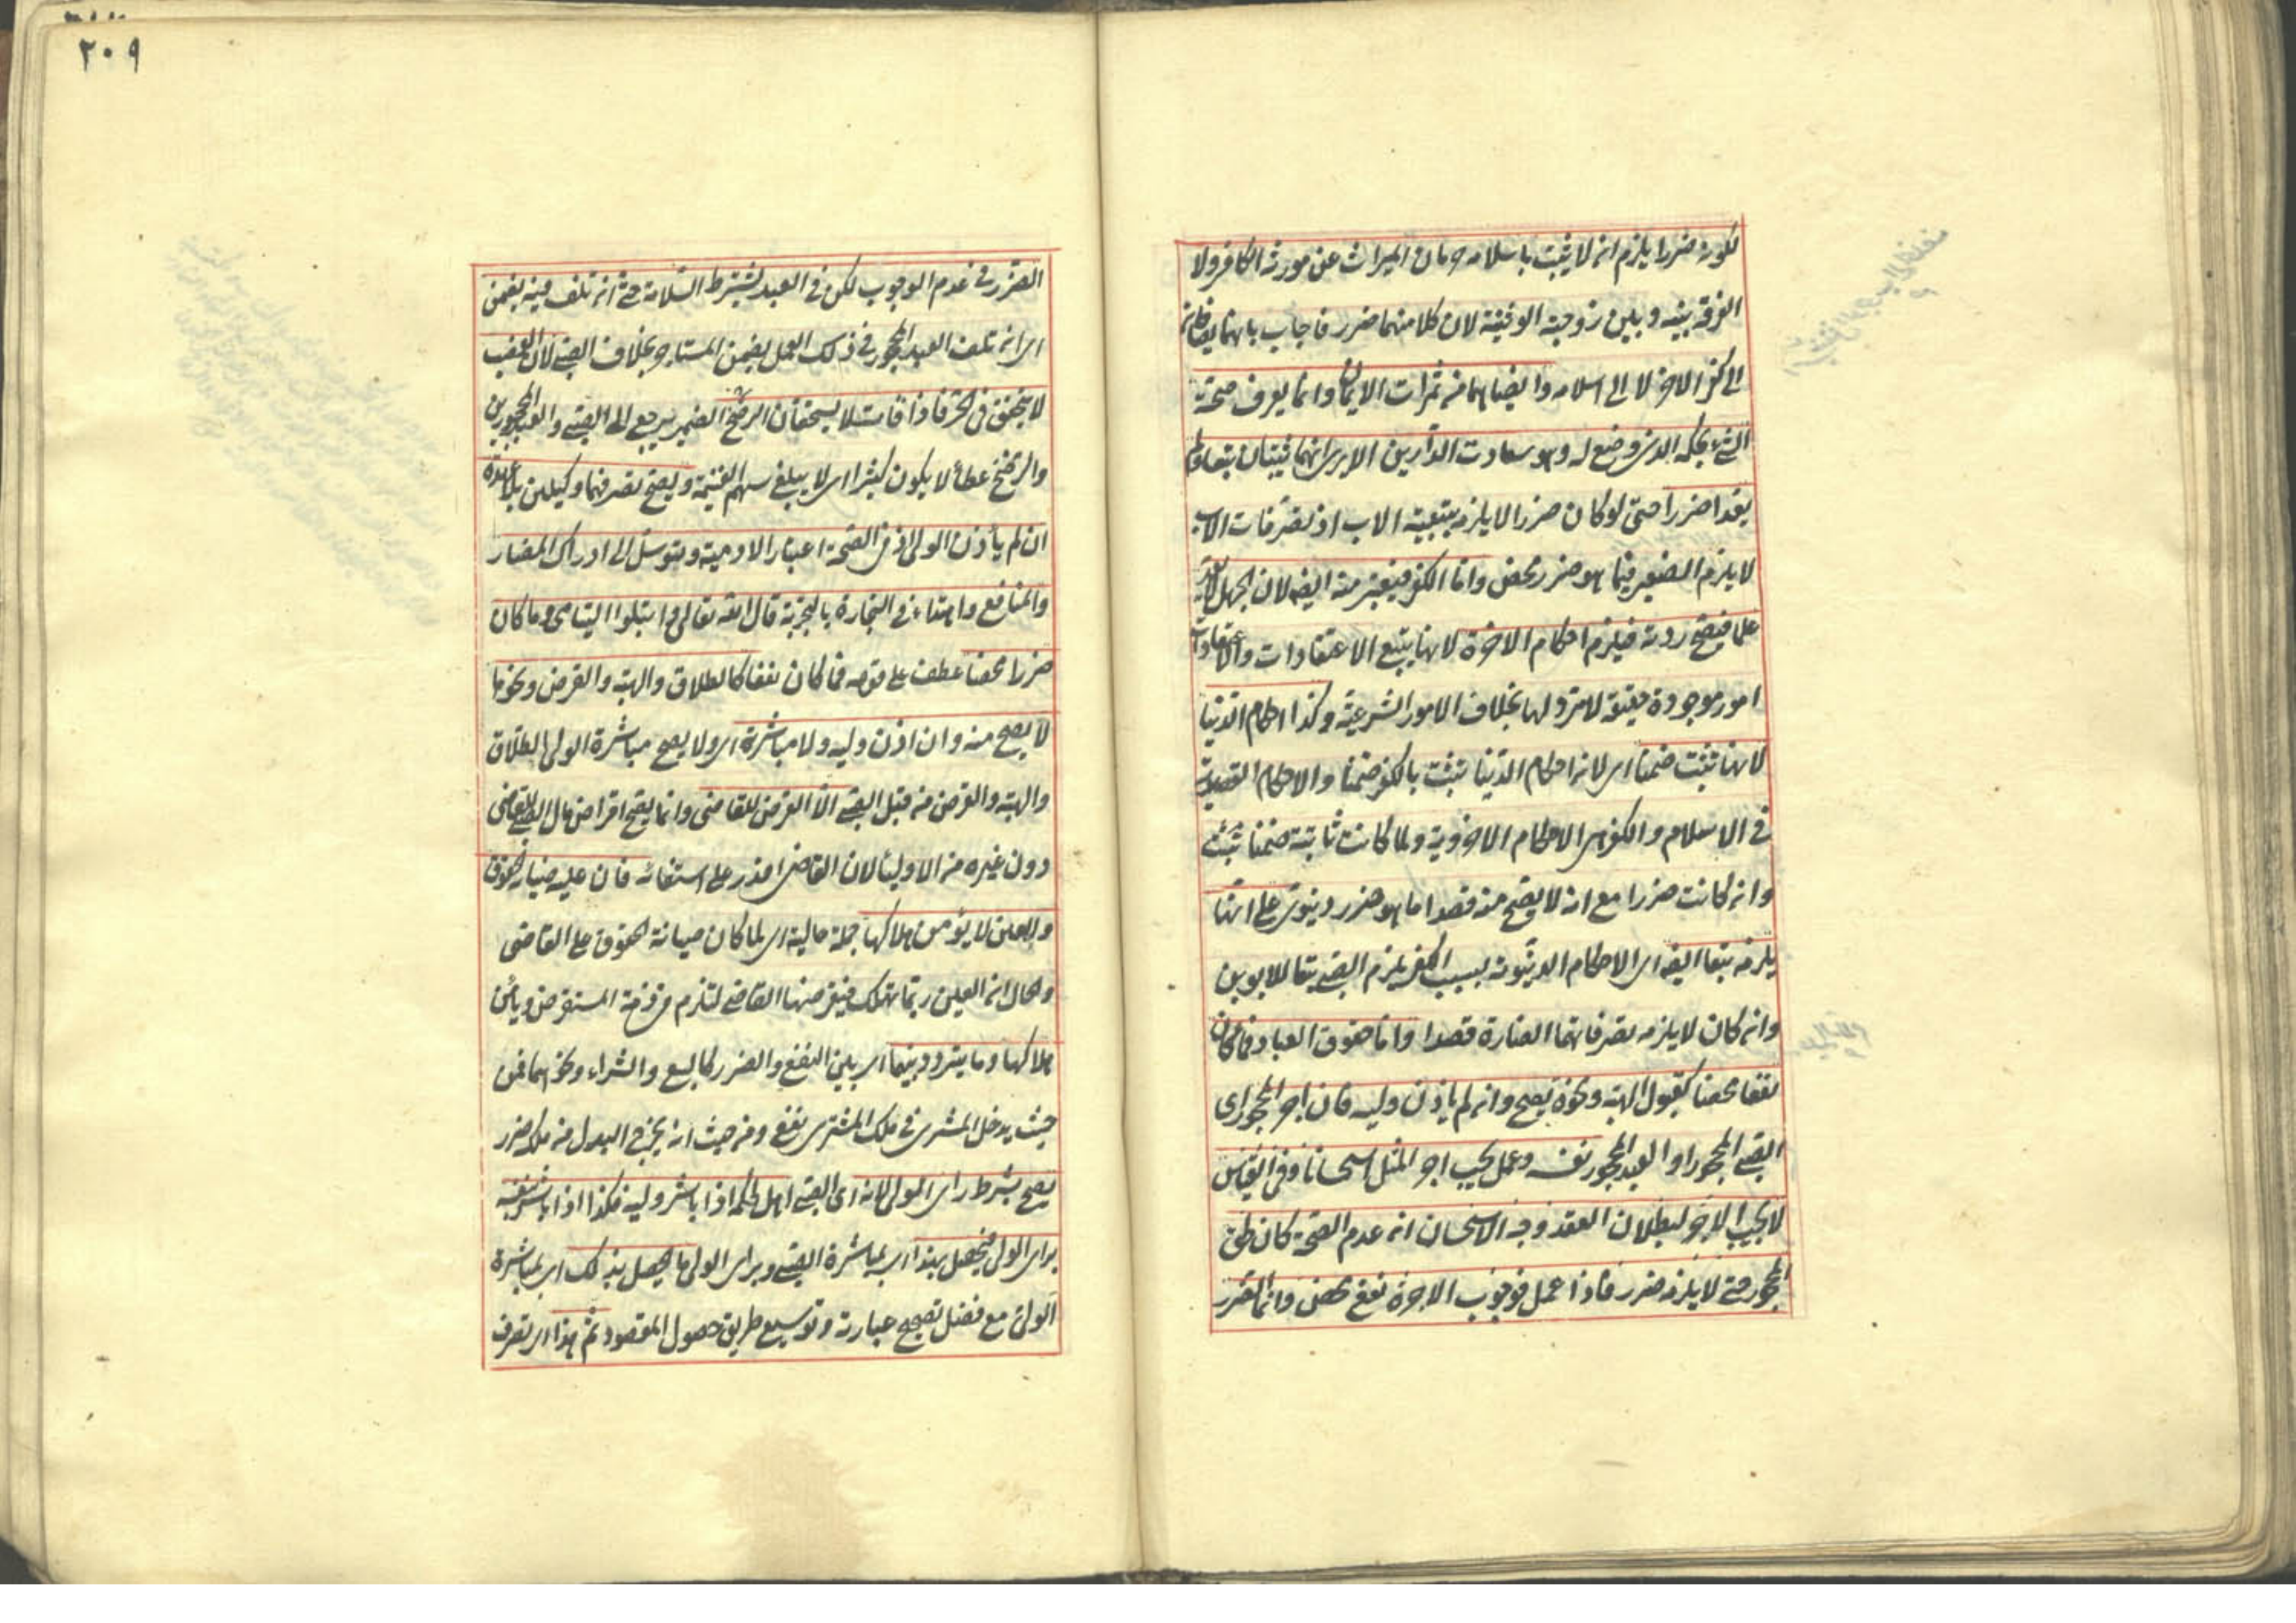 لكونه ضررا يلزم ان لا يثبت باسلامه حرمان الميراث عن مورثه الكافر ولا
الفرقة بينه وبين زوجته الوثنية لان كلا منهما ضرر فاجاب بانهما يضافان
الى كفر الآخر لا الى اسلامه وايضا هما من ثمرات الايمان وانما يعرف صحة
الشيء بحكمه الذي وضع له وهو سعادت الدارين الا يرى انهما يثبتان تبعا ولم
يعدا ضررا حتى لو كان ضررا لا يلزمه بتبعية الاب اذ تصرفات الاب
لا يلزم الصغير فيما هو ضرر محض واما الكفر فيعتبر منه ايضا لان الجهل لا يعد
علما فيصح ردته فيلزم احكام الآخرة لانها يتبع الاعتقادات والاعتقادات
امور موجودة حقيقة لا مرد لها بخلاف الامور الشرعية وكذا احكام الدنيا
لانها تثبت ضمنا اي لان احكام الدنيا تثبت بالكفر ضمنا والاحكام القصدية
في الاسلام والكفر هي الاحكام الاخروية ولما كانت ثابتة ضمنا تثبت
وان كانت ضررا مع انه لا يصح منه قصدا ما هو ضرر دنيوي على انها
يلزمه تبعا ايضا اي الاحكام الدنيوية بسبب الكفر يلزم الصبي تبعا للابوين
وان كان لا يلزمه تصرفاتهما الضارة قصدا واما حقوق العباد فما كان
نفعا محضا كقبول الهبة ونحوه يصح وان لم يأذن وليه فان اجر المحجور اي
الصبي المحجور او العبد المحجور نفسه وعمل يجب اجر المثل استحسانا وفي القياس
لا يجب الاجر لبطلان العقد وجه الاستحسان ان عدم الصحة كان لحق
المحجور حتى لا يلزمه ضرر فاذا عمل فوجوب الاجرة نفع محض وانما الضرر
٢٠٩
الضرر في عدم الوجوب لكن في العبد يشترط السلامة حتى ان تلف فيه يضمن
اي ان تلف العبد المحجور في ذلك العمل يضمن المستاجر بخلاف الصبي لان الغصب
لا يتحقق في الحر فاذا قاتلا يستحقان الرضخ الضمير يرجع الى الصبي والعبد المحجورين
والرضخ عطاء لا يكون كثيرا اي لا يبلغ سهم الغنيمة ويصح تصرفهما وكيلين بلا عهدة
ان لم يأذن الولي اذ في الصحة اعتبار الآدمية وتوسل الى ادراك المضار
والمنافع واهتداء في التجارة بالتجربة قال الله تعالى وابتلوا اليتامى وما كان
ضررا محضا عطف على قوله فما كان نفعا كالطلاق والهبة والقرض ونحوها
لا يصح منه وان اذن وليه ولا مباشرة اي ولا يصح مباشرة الولي الطلاق
والهبة والقرض من قبل الصبي الا القرض للقاضي وانما يصح اقراض مال الصبي للقاضي
دون غيره من الاولياء لان القاضي اقدر على استيفائه فان عليه صيانة الحقوق
والعين لا يؤمن هلاكها جملة حالية اي لما كان صيانة الحقوق على القاضي
والحال ان العين ربما تهلك فيقرضها القاضي لتلزم في ذمة المستقرض ويأمن
هلاكها وما يتردد بينهما اي بين النفع والضرر كالبيع والشراء ونحوهما فمن
حيث يدخل المشترى في ملك المشتري نفع ومن حيث انه يخرج البدل من ملكه ضرر
يصح بشرط راي الولي لانه اي الصبي اهل لحكمه اذا باشر وليه فكذا اذا باشر بنفسه
براي الولي فيحصل بهذا اي بمباشرة الصبي وبراي الولي ما يحصل بذلك اي بمباشرة
الولي مع فضل تصحيح عبارته وتوسيع طريق حصول المقصود ثم هذا اي تصرف